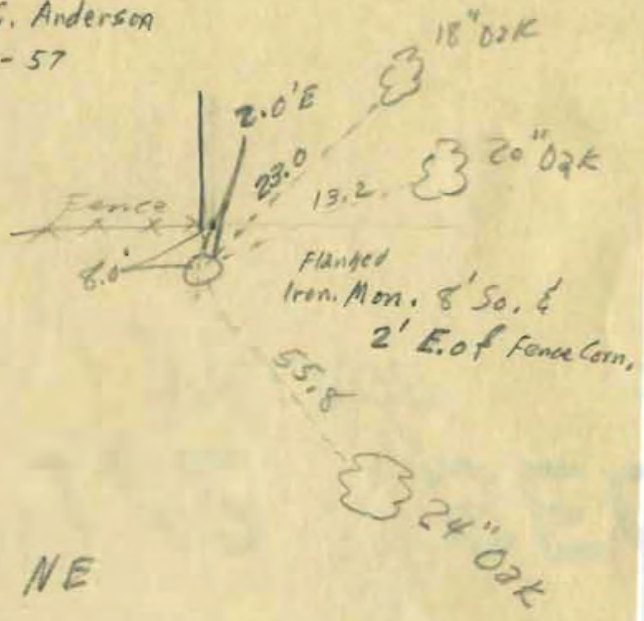 S. Anderson
- 57
18" Oak
2.0' E
23.0
20" Oak
13.2
Fence
8.0'
Flanged
Iron. Mon. 8' So. &
2' E. of Fence Corn.
55.8
24" Oak
NE